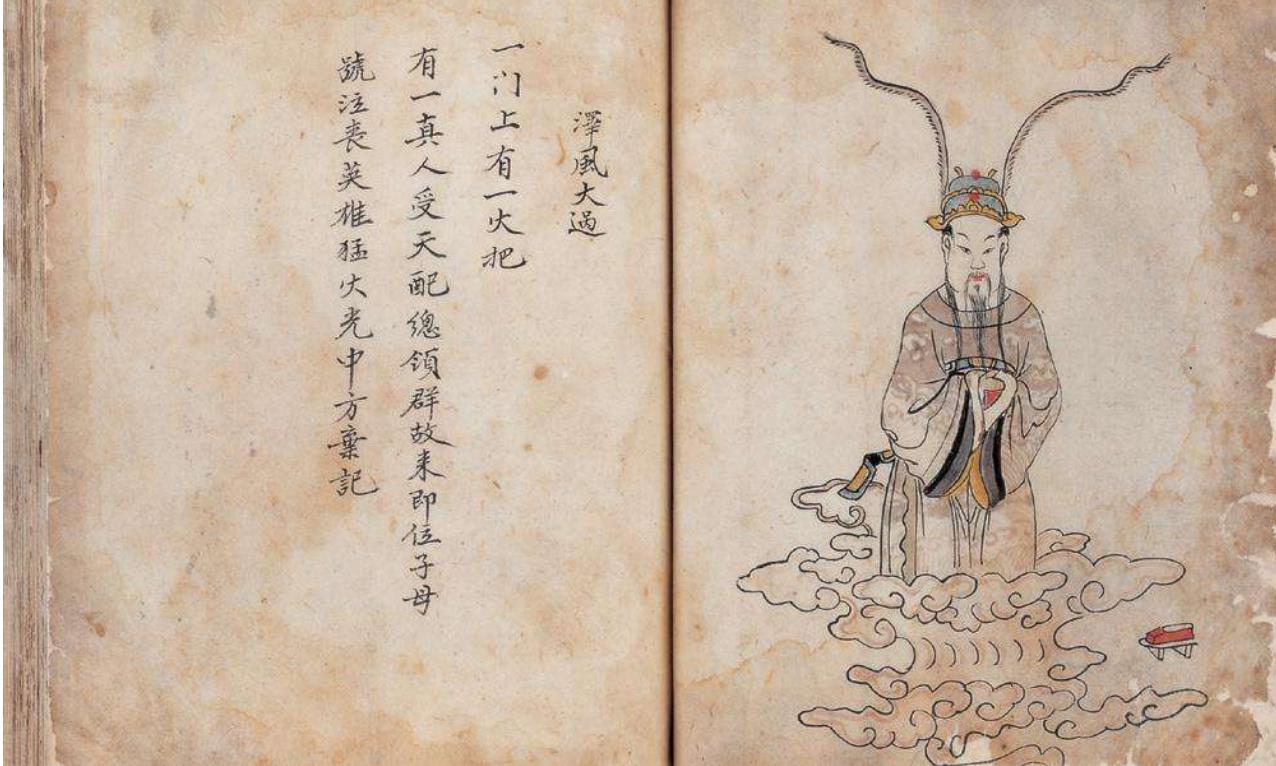 澤風大過
一门上有一火把
有一真人受天配總領群故来即位子母
號泣喪英雄猛火光中方棄記